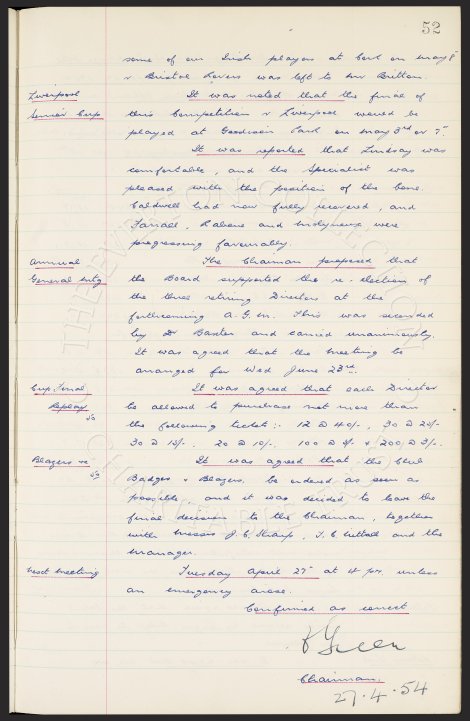 52
some of our Irish players at Cork on May 8
v Bristol Rovers was left to Mr Britton.
Liverpool Senior Cup
It was noted that the final of
this Competition v Liverpool would be
played at Goodison Park on May 3rd or 7.
It was reported that Lindsay was
comfortable, and the Specialist was
pleased with the position of the bone.
Caldwell had now fully recovered, and
Farrall, Rabone and
were
progressing favourably.
Annual General Mtg
The Chairman proposed that
the Board supported the re-election of
the three retiring Directors at the
forthcoming A.G.M. This was seconded
by Dr Baxter and carried unanimously.
It was agreed that the meeting be
arranged for Wed June 23rd.
Cup Final Replay
It was agreed that each Director
be allowed to purchase not more than
the following tickets:- 12 @ 40/-, 30 @
30 @ 15/-, 20 @ 10/-, 100 @
200 @ 3/-.
Blazers
It was agreed that the Club
Badges & Blazers, be ordered as soon as
possible, and it was decided to leave the
final decision to the Chairman, together
with Messrs J.C. Sharp, T.C. Nuttall and the
Manager.
Next Meeting
Tuesday April 27 at 4 pm. unless
an emergency arose.
Confirmed as correct
Green
Chairman.
27.4.54
THE EVERTON COLLECTION